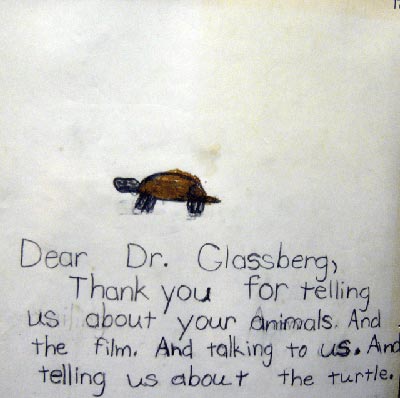 Dear Dr. Glassberg,
Thank you for telling
us about your Animals. And
the film. And talking to us. And
telling us about the turtle.